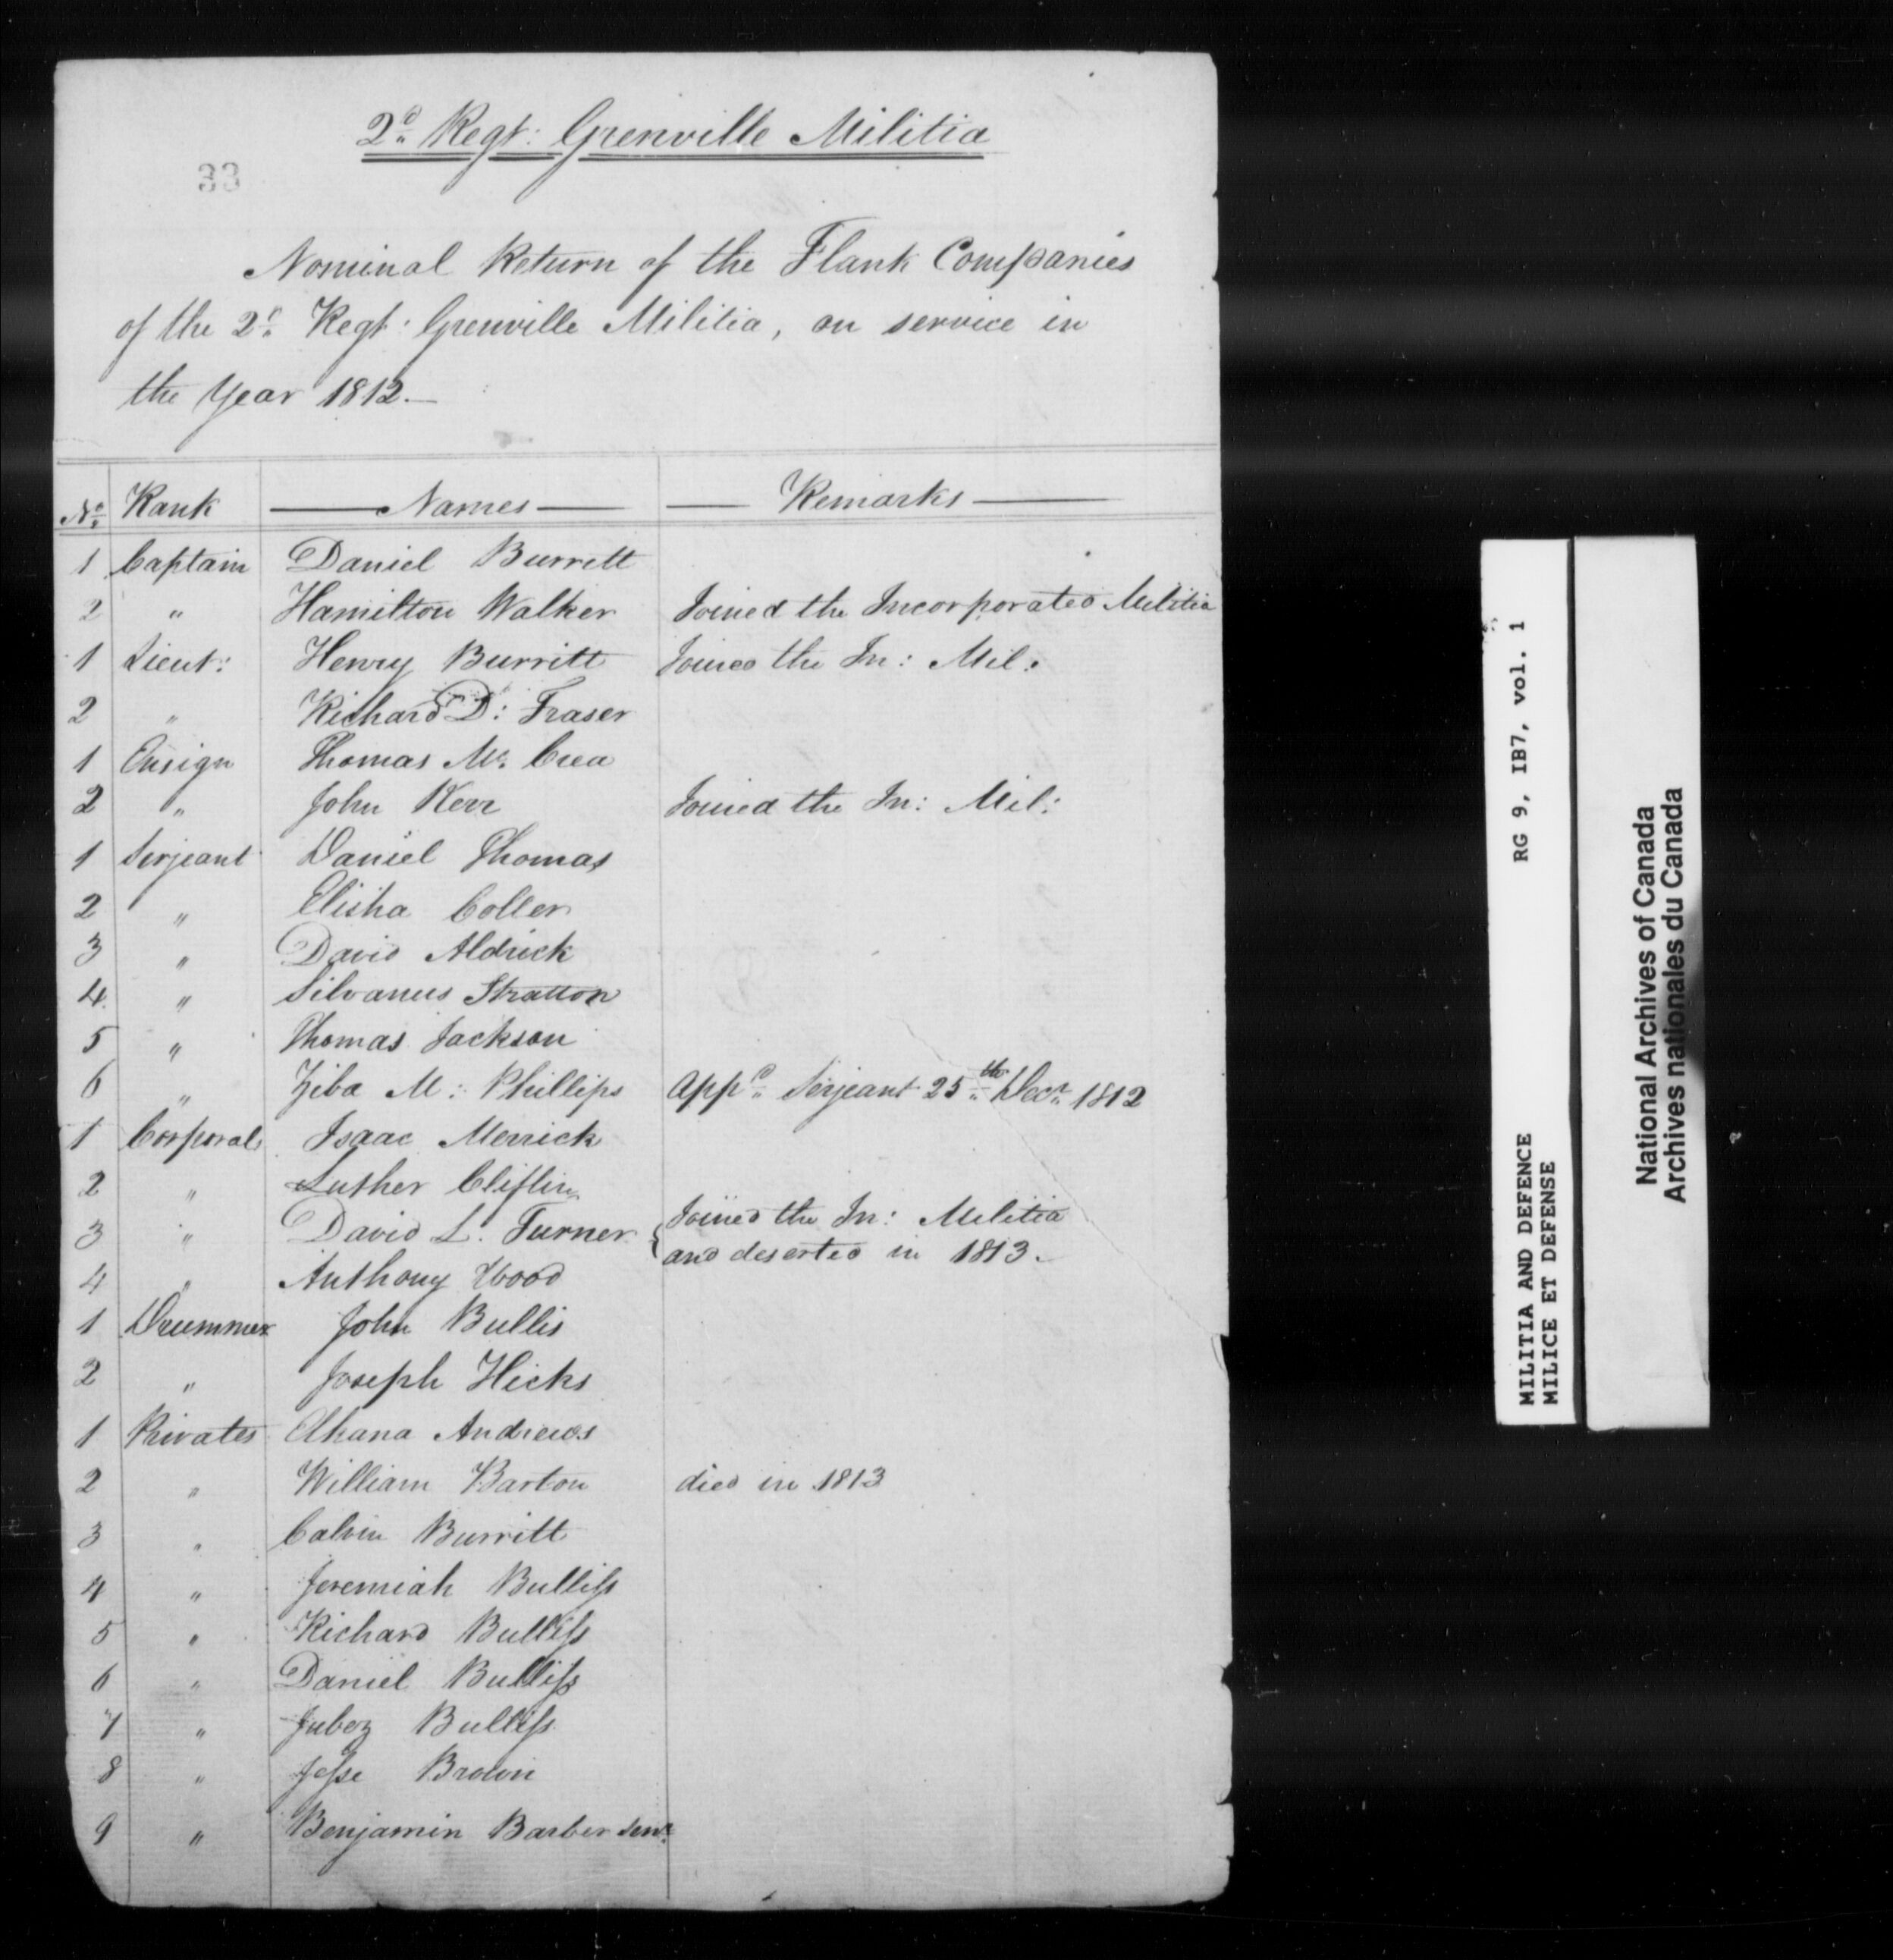 2d Regt: Grenville Militia
33
Nominal Return of the Flank Companies
of the 2d Regt: Grenville Militia, on service in
the Year 1812.—
No. Rank Names Remarks
1 Captain Daniel Burritt
2 " Hamilton Walker Joined the Incorporated Militia
1 Lieut: Henry Burritt Joined the In: Mil:
2 " Richard D: Fraser
1 Ensign Thomas Mc. Crea
2 " John Kerr Joined the In: Mil:
1 Serjeant Daniel Thomas
2 " Elisha Coller
3 " David Aldrick
4 " Silvanus Stratton
5 " Thomas Jackson
6 " Ziba M: Phillips Appd. Serjeant 25th Decr. 1812
1 Corporal Isaac Merrick
2 " Luther Cliflin
3 " David L. Turner { Joined the In: Militia
and deserted in 1813.
4 " Anthony Wood
1 Drummer John Bullis
2 " Joseph Hicks
1 Privates Elkana Andrews
2 " William Barton died in 1813
3 " Calvin Burritt
4 " Jeremiah Bulliſs
5 " Richard Bulliſs
6 " Daniel Bulliſs
7 " Jubez Bulliſs
8 " Jeſse Brown
9 " Benjamin Barber Senr.
MILITIA AND DEFENCE RG 9, IB7, vol. 1
MILICE ET DEFENSE
National Archives of Canada
Archives nationales du Canada